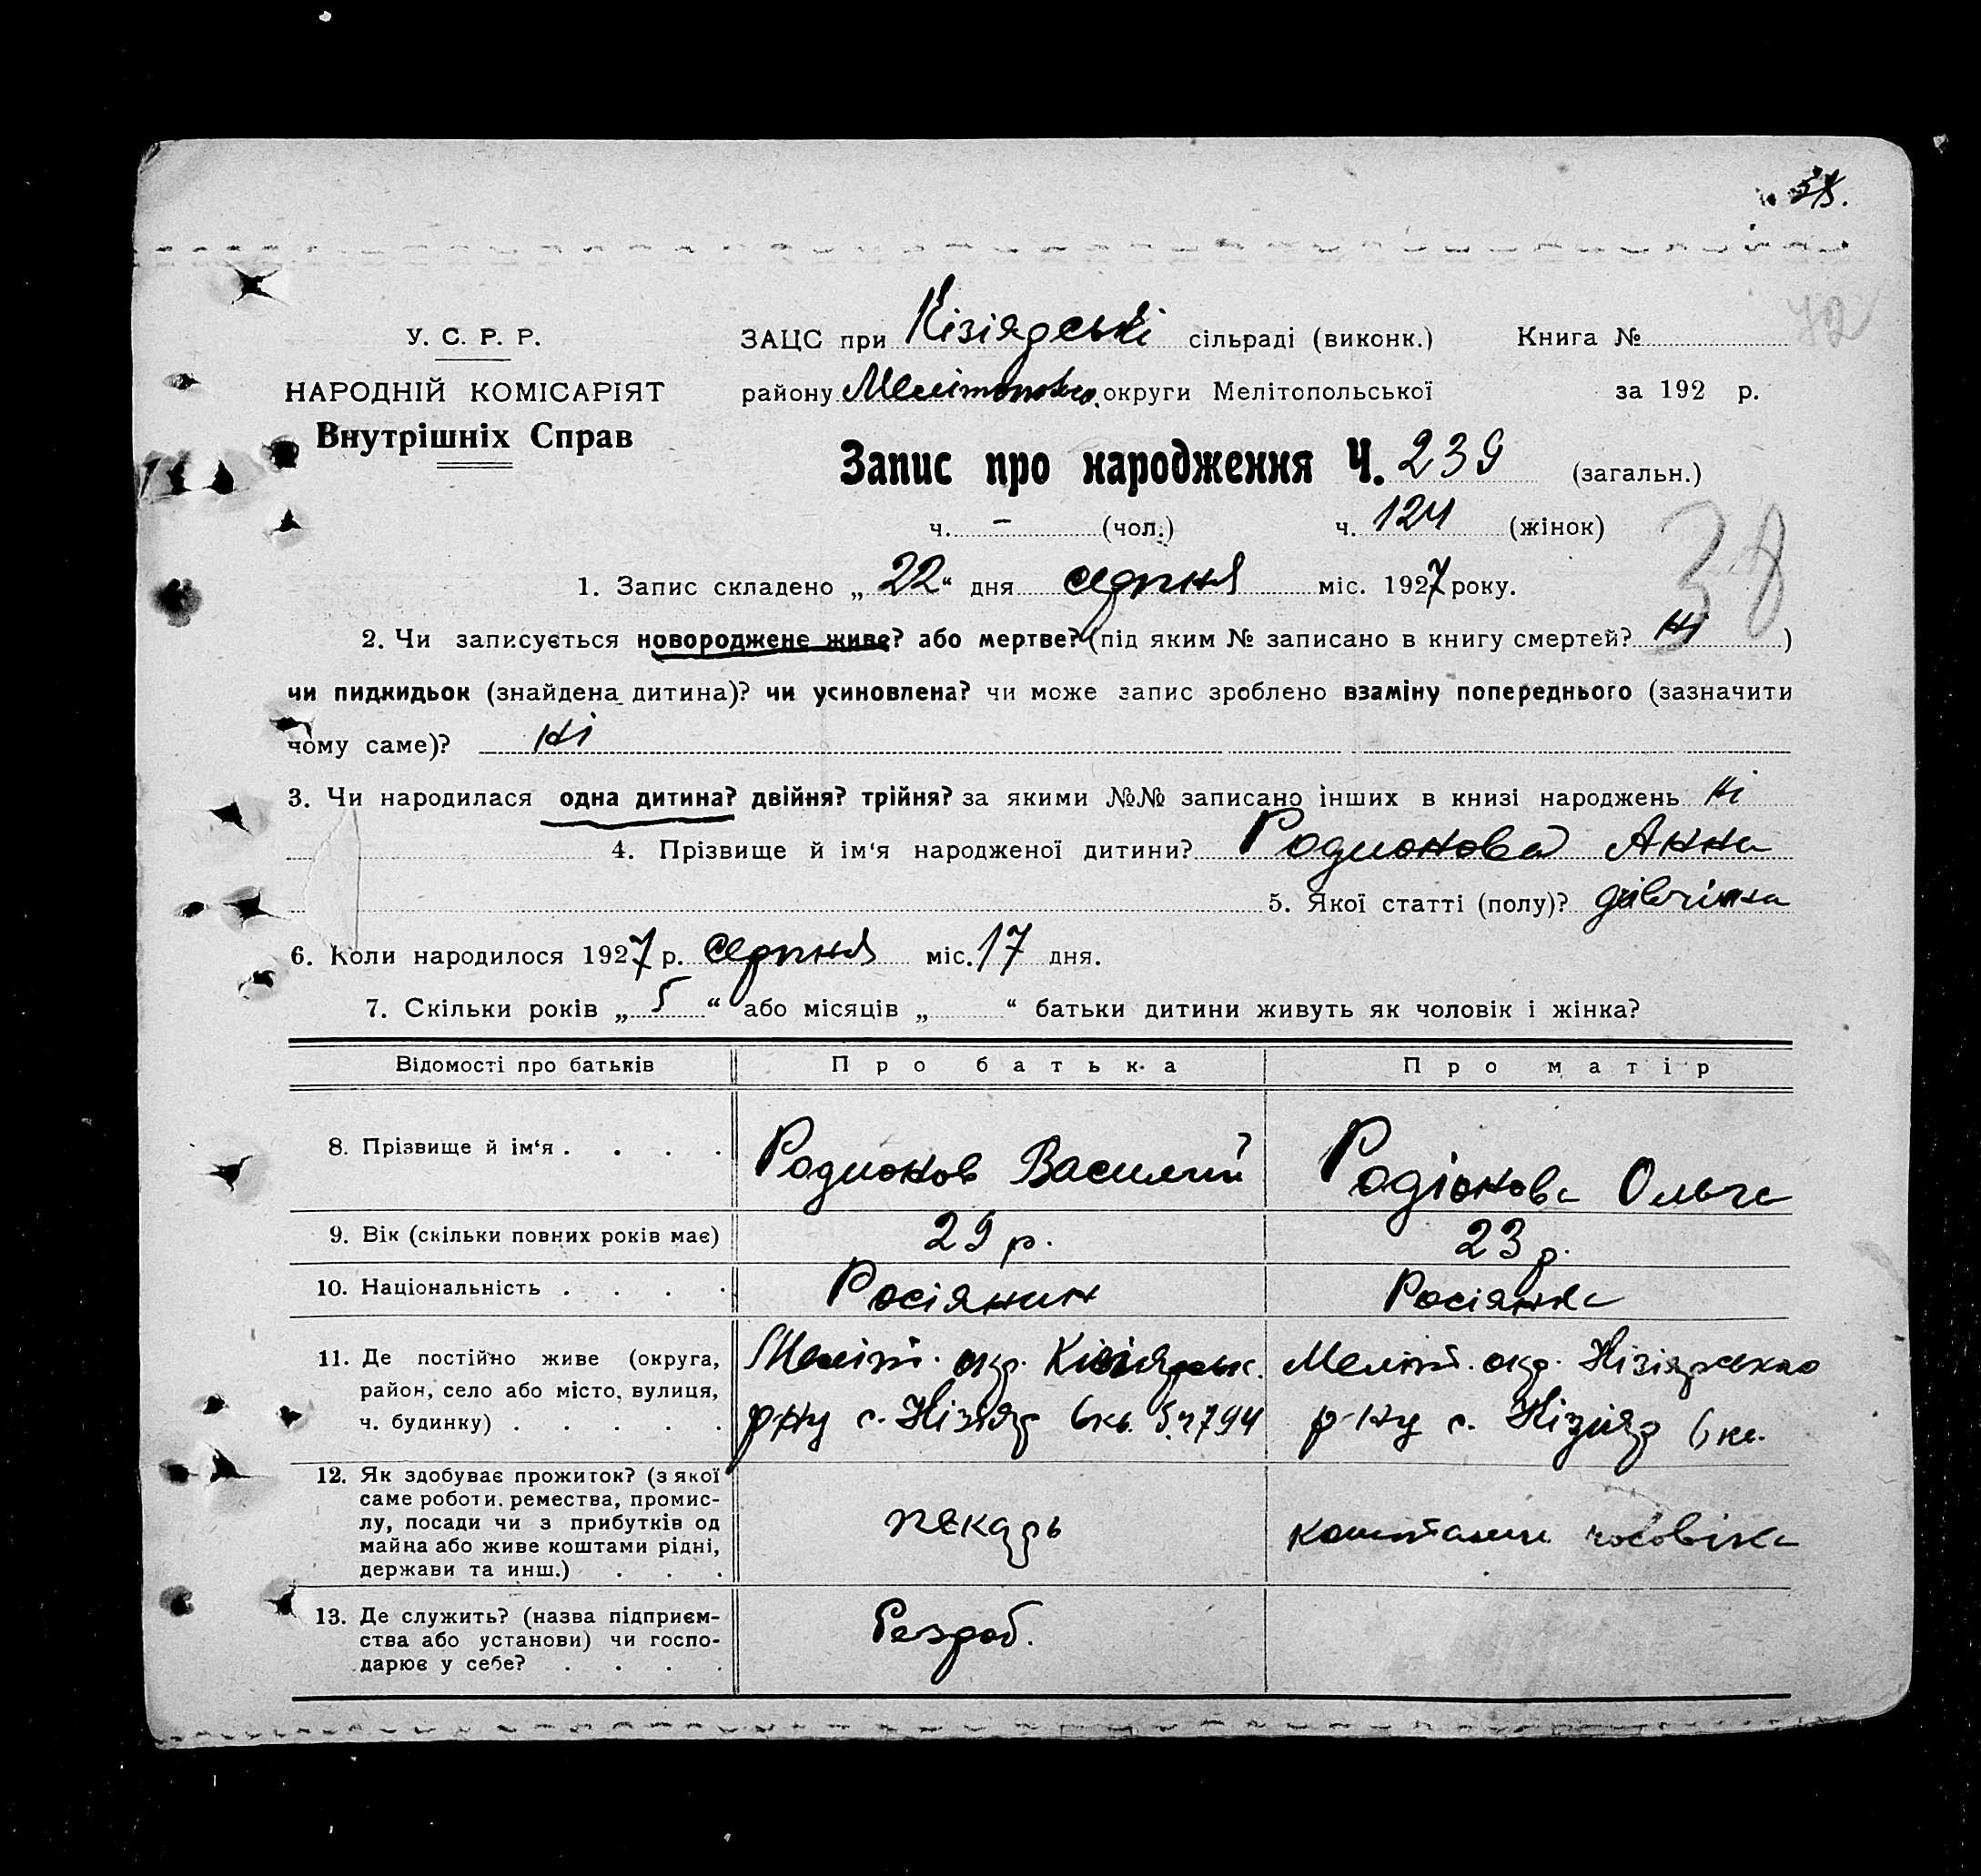 38.
42
У. С. Р. Р.
НАРОДНІЙ КОМІСАРІЯТ
Внутрішніх Справ
ЗАЦС при Кізіярські сільраді (виконк.) Книга №
району Мелітопольск. округи Мелітопольської за 192 р.
Запис про народження Ч. 239 (загальн.)
ч. - (чол.) ч. 124 (жінок)
38
1. Запис складено „22“ дня серпня міс. 1927 року.
2. Чи записується новороджене живе? або мертве? (під яким № записано в книгу смертей? Ні )
чи пидкидьок (знайдена дитина)? чи усиновлена? чи може запис зроблено взаміну попереднього (зазначити
чому саме)? Ні
3. Чи народилася одна дитина? двійня? трійня? за якими №№ записано інших в книзі народжень Ні
4. Прізвище й ім‘я народженої дитини? Родионова Анна
5. Якої статті (полу)? дівчинка
6. Коли народилося 1927 р. серпня міс. 17 дня.
7. Скільки років „ 5 “ або місяців „ “ батьки дитини живуть як чоловік і жінка?
Відомості про батьків Про батька Про матір
8. Прізвище й ім‘я . . . . Родионов Василий Родіонова Ольга
9. Вік (скільки повних років має) 29 р. 23 р.
10. Національність . . . . Росіянин Росіянка
11. Де постійно живе (округа, Меліт. окр. Кізіярськ. Меліт. окр. Кізіярського
район, село або місто, вулиця, р-ну с. Кізіяр 6 кв. 794 р-ну с. Кізіяр 6 кв.
ч. будинку) . . . . .
12. Як здобуває прожиток? (з якої
саме роботи, ремества, промис-
лу, посади чи з прибутків од пекарь коштами чоловіка
майна або живе коштами рідні,
держави та инш.) . . .
13. Де служить? (назва підприєм- Безроб.
ства або установи) чи госпо-
дарює у себе? . . . .